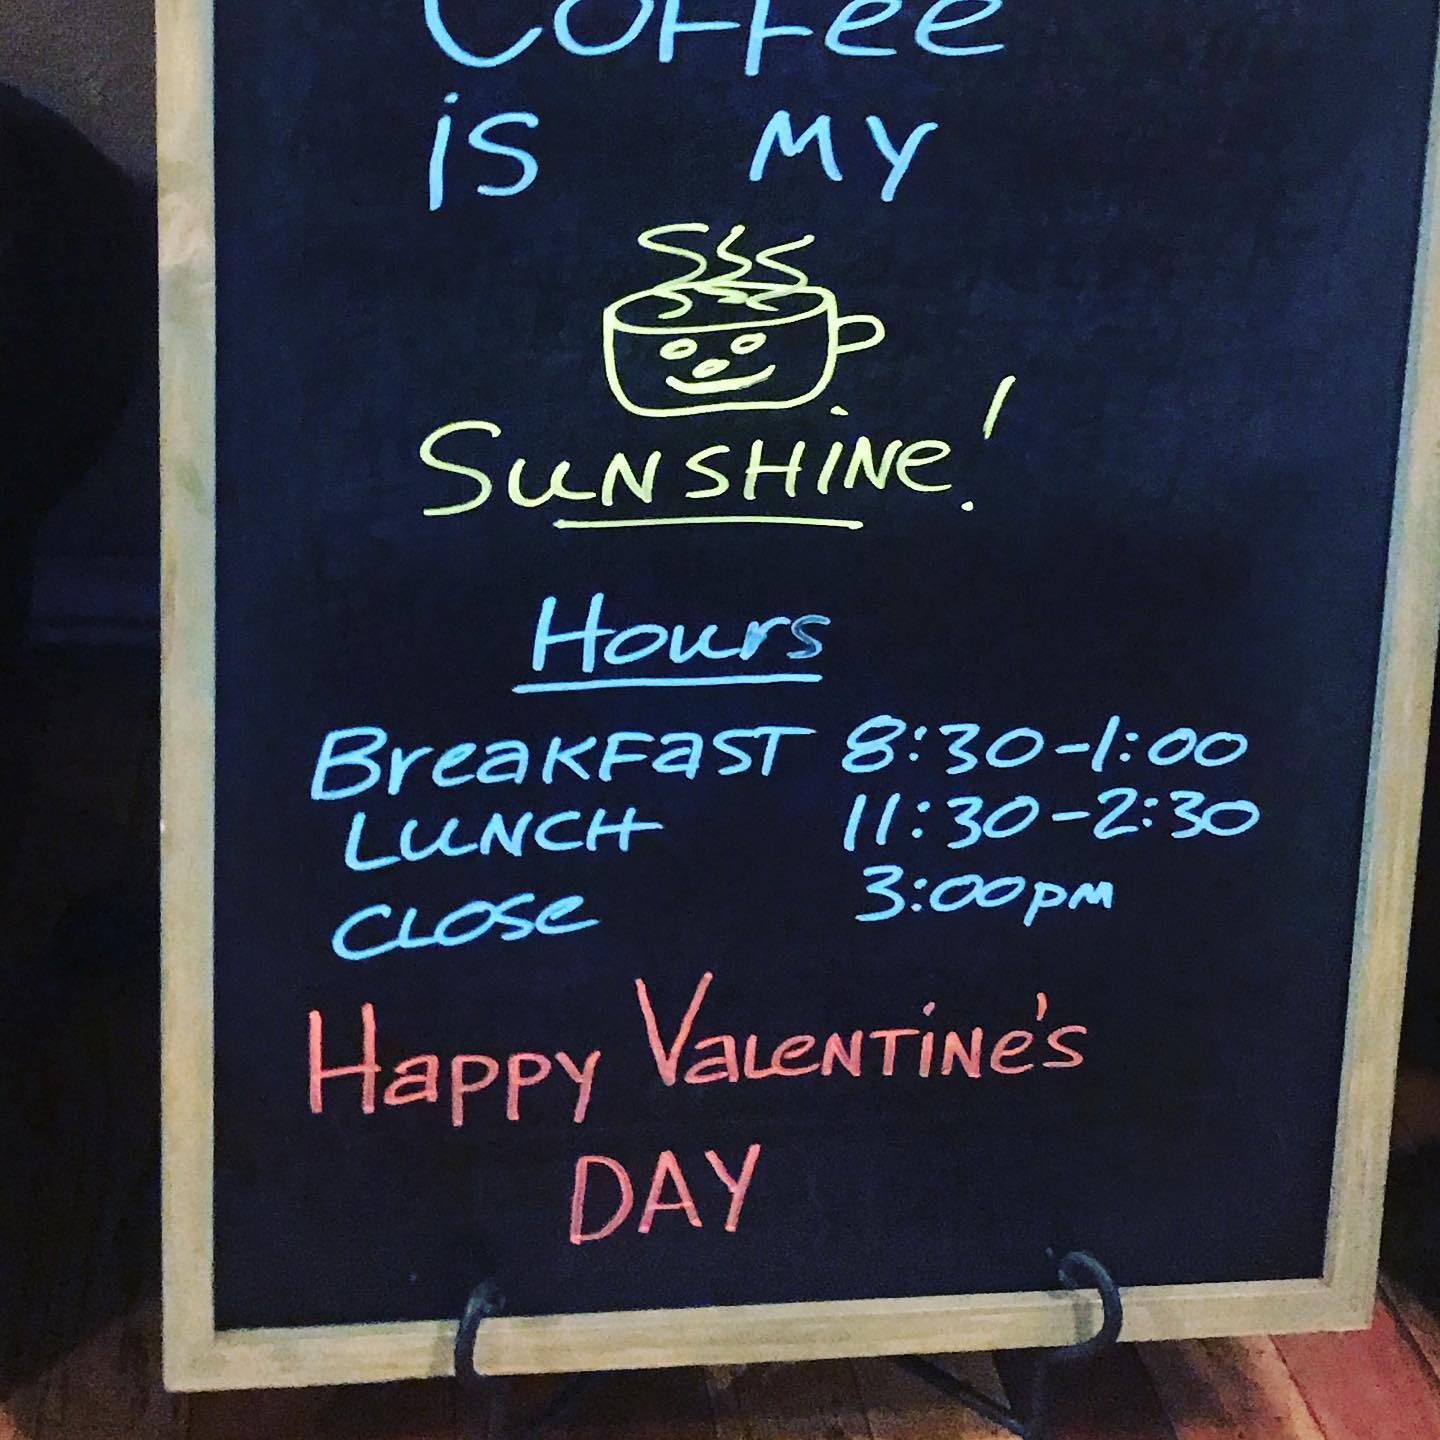 Coffee
is MY
SUNSHINe!
Hours
BreaKFaST 8:30-1:00
LUNCH 11:30-2:30
CLOSe 3:00pm
Happy ValeNTiNe's
DAY